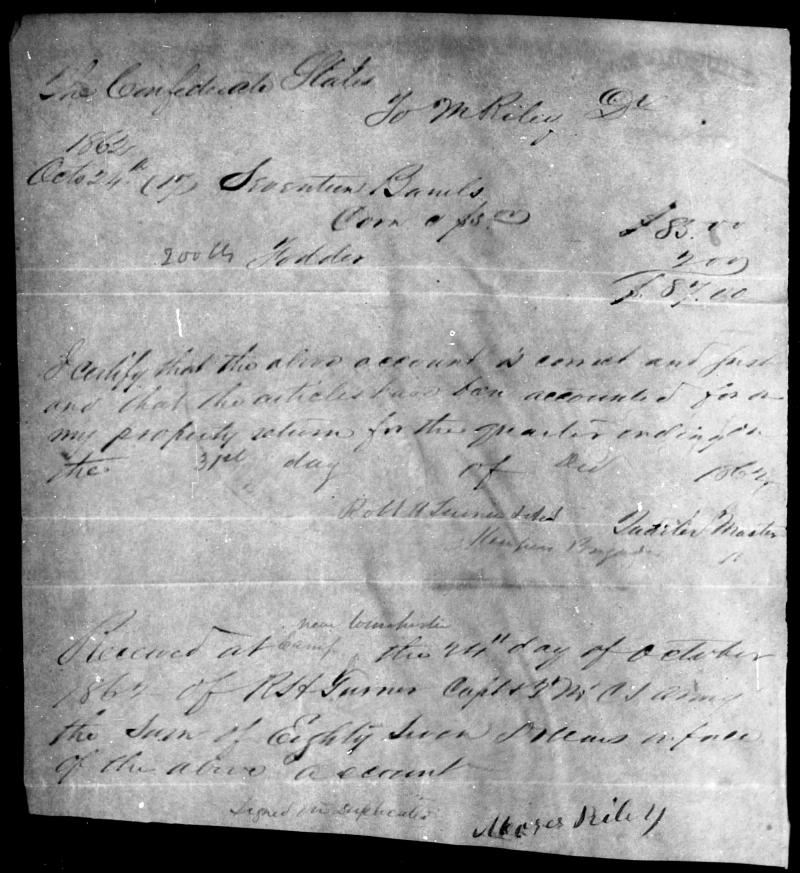 The Confederate States
To M Riley Dr
1862
Octo 24th (17) Seventeen Barrels
Corn @ $5.00 $85.00
200 lbs Fodder 2.00
$87.00
I certify that the above account is correct and just
and that the articles have been accounted for on
my property return for the quarter ending on
the 31st day of Dec 1862
Robt H Turner Quarter Master
Kempers Brigade
near Winchester
Received at Camp the 24th day of October
1862 of R H Turner Capt & QM CS Army
the Sum of Eighty Seven Dollars in full
of the above account
Signed in duplicate
Moses Riley